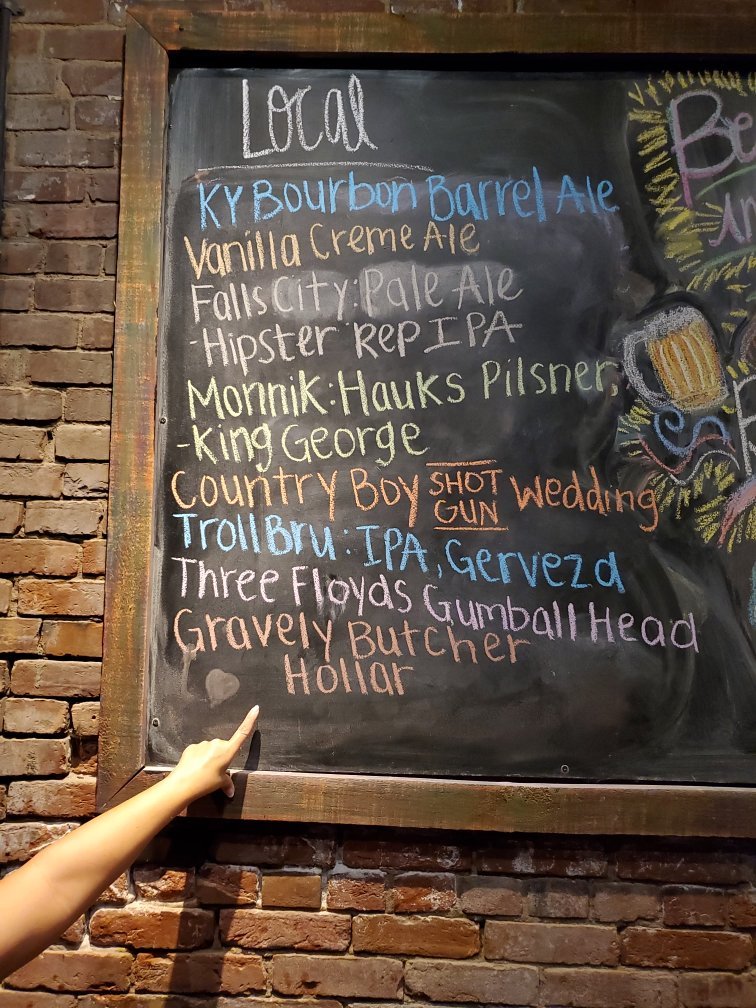 Local
KY Bourbon Barrel Ale
Vanilla Creme Ale
Falls City: Pale Ale
-Hipster Rep IPA
Monnik: Hauks Pilsner,
-King George
Country Boy SHOT GUN Wedding
TrollBru: IPA, Gerveza
Three Floyds Gumball Head
Gravely Butcher
Hollar
Be